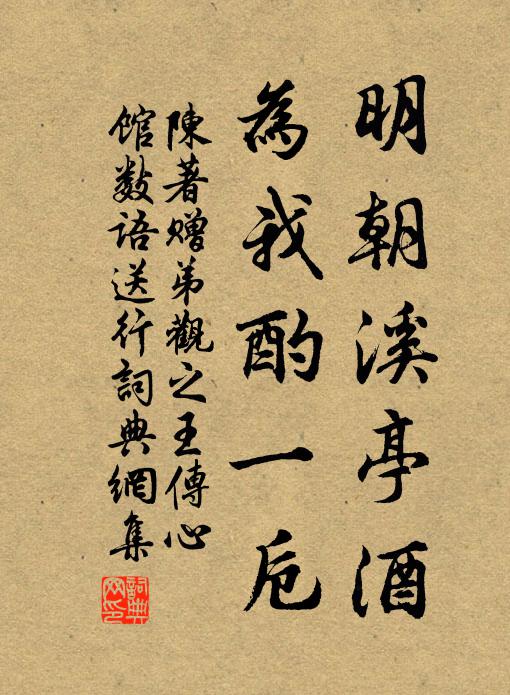 明朝溪亭酒
為我酌一卮
陳著贈弟觀之王傳心
館數語送行詞典網集
詞典網印